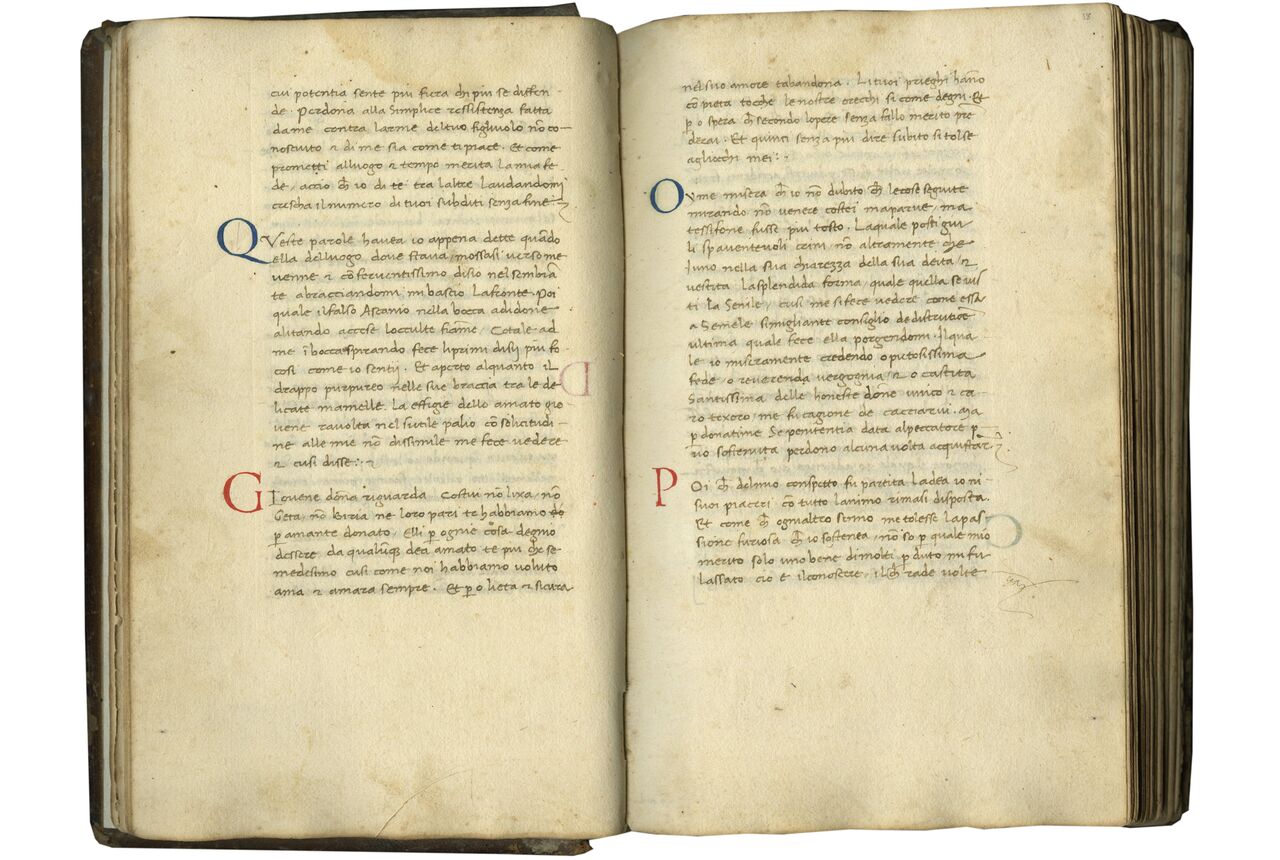 cui potentia sente piu fiera chi piu se diffen-
de. Perdona alla Simplice ressistenza fatta
dame contra larme deltuo figliuolo nō co-
nosciuto & di me sia come ti piace. Et come
prometti alluogo & tempo merita lamia fe-
de, accio ch̄ io di te tra laltre laudandomi
crescha il numero di tuoi subditi senza fine
QVeste parole havea io appena dette quādo
ella delluogo dove stava, mossasi verso me
venne & cō ferventissimo disio nel sembiā-
te abracciandomi mi bascio Lafronte. Poi
quale ilfalso Ascanio nella bocca adidone
alitando accese locculte fiāme. Cotale ad
me ī bocca spirando fece liprimi disij piu fo-
cosi come io sentii. Et aperto alquanto il
drappo purpureo nelle sue braccia tra le de-
licate mamelle. La effigie dello amato gio-
vene ravolta nel sutile palio cō solicitudi-
ne alle mie nō dissimile me fece vedere
& cusi disse:~
GIovene dōna riguarda Costui nō lixa, nō
Geta, nō Biria ne loro pari te habbiamo
p̄ amante donato, Elli p̄ ognie cosa degno
dessere da qualunq̄ dea amato te piu ch̄ se
medesimo cusi come noi habbiamo voluto
ama & amara sempre. Et p̄o lieta & sicura
18
nel suo amore tabandona. Li tuoi prieghi hāno
cō pieta tocche le nostre orecchi si come degni. Et
p̄o spera ch̄ secondo lopere senza fallo merito pre
derai. Et quinci senza piu dire subito si tolse
agliocchi mei:~
OYme misera ch̄ io nō dubito ch̄ le cose seguite
mirando nō venere costei maparve, ma
tessifone fusse piu tosto. Laquale posti giu
li spaventevoli crini nō altramente che
Juno nella sua chiarezza della sua deita, &
vestita lasplendida forma, quale quella se vis
ti La Senile, cusi me si fece vedere come essa
a Semele simigliante consiglio dedistrutiōe
ultima quale fece ella porgendomi. Ilqua
le io miseramente credendo o piatosissima
fede, o reverenda vergognia & o castita
Santissima delle honeste dōne unico & ca
ro texoro, me fu cagione de cacciarvi. Ma
p̄donatime Se penitentia data alpeccatore p̄
no sostenuta perdono alcuna volta acquistar
POi ch̄ delmio conspetto fu partita ladea io ni
suoi piaceri cō tutto lanimo rimasi disposta.
Et come ch̄ ognialtro senno me tolesse lapas
sione furiosa ch̄ io sostenea, nō so p̄ quale mio
merito solo uno bene dimolti p̄duto mi fu
lassato cio e ilconoscere, ilch̄ rade volte